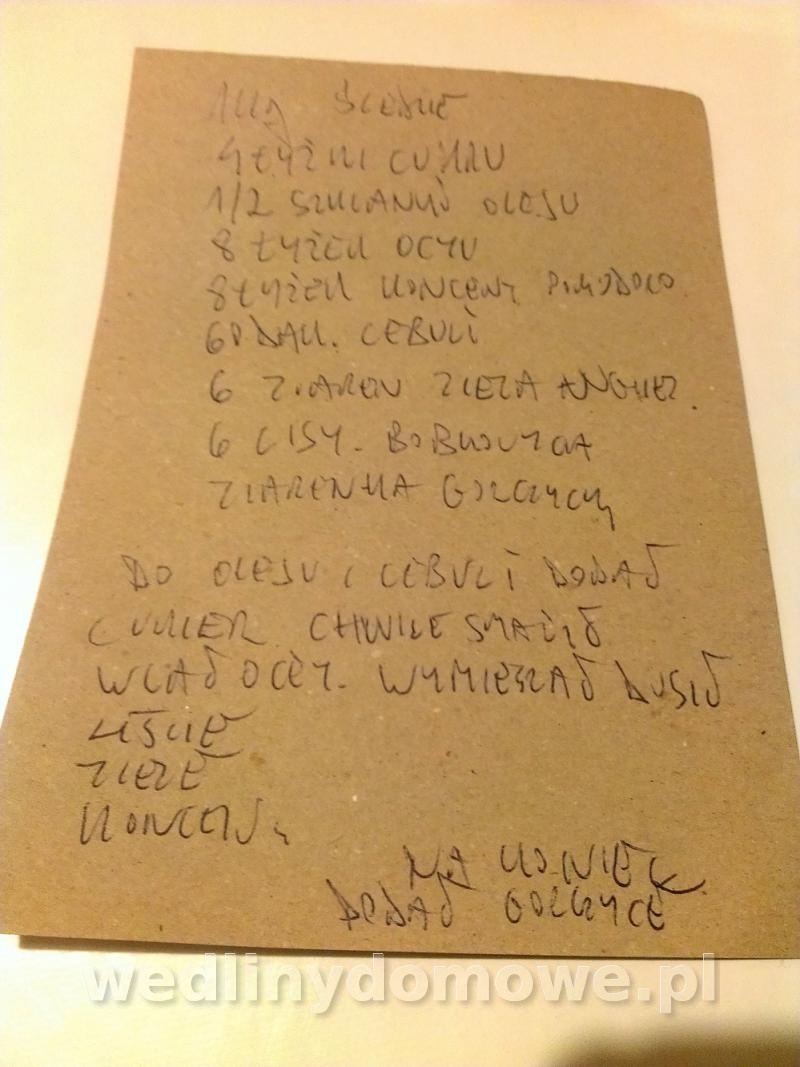 1kg ŚLEDZIE
4 ŁYŻKI CUKRU
1/2 SZKLANKI OLEJU
8 ŁYŻEK OCTU
8 ŁYŻEK KONCENT POMIDORO
60 DAK. CEBULI
6 ZIAREN ZIELA ANGIEL.
6 LIST. BOBKOWYCH
ZIARENKA GORCZYCY
DO OLEJU I CEBULI DODAĆ
CUKIER CHWILE SMAŻYĆ
WLAĆ OCET. WYMIESZAĆ DUSIĆ
LIŚCIE
ZIELE
KONCENT.
NA KONIEC
DODAĆ GORCZYCE
wedlinydomowe.pl